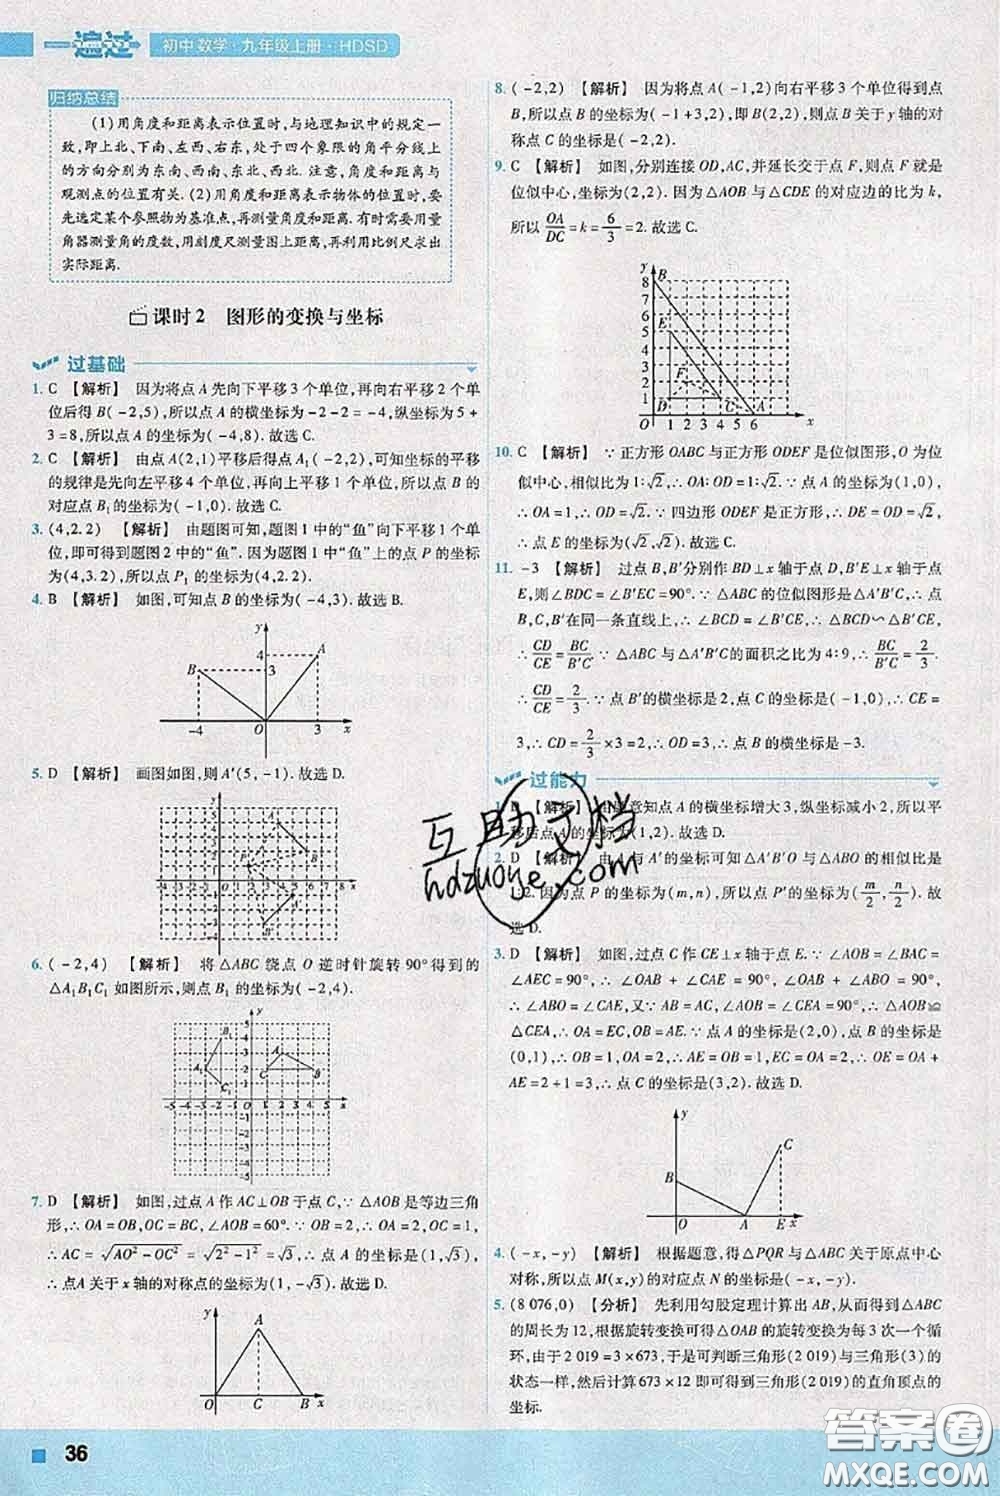 一遍过 初中数学·九年级上册·HDSD
归纳总结
(1)用角度和距离表示位置时,与地理知识中的规定一
致,即上北、下南、左西、右东,处于四个象限的角平分线上的
方向分别为东南、西南、东北、西北. 注意,角度、距离的大小
与观测点的位置有关. (2)用角度和距离表示物体的位置时,要
先选定某个参照物为基准点,再测量角度和距离. 有时需要用量
角器测量角的度数,用刻度尺测量图上距离,再利用比例尺求出
实际距离.
课时2 图形的变换与坐标
过基础
1. C 【解析】 因为将点A先向下平移3个单位,再向右平移2个单
位后得B(-2,5),所以点A的横坐标为-2-2=-4,纵坐标为5+
3=8,所以点A的坐标为(-4,8). 故选C.
2. C 【解析】 由点A(2,1)平移后得点A₁(-2,2),可知坐标的平移
的规律是先向左平移4个单位,再向上平移1个单位,所以点B的
对应点B₁的坐标为(-1,0). 故选C.
3. (4,2.2) 【解析】 由题图可知,题图1中的“鱼”向下平移1个单
位,即可得到题图2中的“鱼”. 因为题图1中“鱼”上的点P的坐标
为(4,3.2),所以点P₁的坐标为(4,2.2).
4. B 【解析】 如图,可知点B的坐标为(-4,3). 故选B.
y
4 A
B 3
-4 O 3 x
5. D 【解析】 画图如图,则A′(5,-1). 故选D.
6. (-2,4) 【解析】 将△ABC绕点O逆时针旋转90°得到的
△A₁B₁C₁如图所示,则点B₁的坐标为(-2,4).
7. D 【解析】 如图,过点A作AC⊥OB于点C,∵△AOB是等边三角
形,∴OA=OB,OC=BC,∠AOB=60°. ∵OB=2,∴OA=2,OC=1,
∴AC=√(AO²-OC²)=√(2²-1²)=√3,∴点A的坐标为(1,√3),
∴点A关于x轴的对称点的坐标为(1,-√3). 故选D.
y
A
O C B x
8. (-2,2) 【解析】 因为将点A(-1,2)向右平移3个单位得到点
B,所以点B的坐标为(-1+3,2),即B(2,2),所以点B关于y轴的对
称点C的坐标是(-2,2).
9. C 【解析】 如图,分别连接OD,AC,并延长交于点F,则点F就是
位似中心,坐标为(2,2). 因为△AOB与△CDE的对应边的比为k,
所以OA/DC=k=6/3=2. 故选C.
y
8 B
7
6
5 E
4
3
2 F
1 D C
O 1 2 3 4 5 6 A x
10. C 【解析】 ∵正方形OABC与正方形ODEF是位似图形,O为位
似中心,相似比为1:√2,∴OA:OD=1:√2. ∵点A的坐标为(1,0),
∴OA=1,∴OD=√2. ∵四边形ODEF是正方形,∴DE=OD=√2,
∴点E的坐标为(√2,√2). 故选C.
11. -3 【解析】 过点B,B′分别作BD⊥x轴于点D,B′E⊥x轴于点
E,则∠BDC=∠B′EC=90°. ∵△ABC的位似图形是△A′B′C,∴点
B,C,B′在同一条直线上,∴∠BCD=∠B′CE,∴△BCD∽△B′CE,
∴CD/CE=BC/B′C. ∵△ABC与△A′B′C的面积之比为4:9,∴BC/B′C=2/3.
∴CD/CE=2/3. ∵点B′的横坐标是2,点C的坐标是(-1,0),∴CE=
3,∴CD=2/3×3=2,∴OD=3,∴点B的横坐标是-3.
过能力
1. D 【解析】 由题意知点A的横坐标增大3,纵坐标减小2,所以平
移后点A的坐标为(1,2). 故选D.
2. D 【解析】 由A与A′的坐标可知△A′B′O与△ABO的相似比是
1:2. 因为点P的坐标为(m,n),所以点P′的坐标为(m/2,n/2). 故
选D.
3. D 【解析】 如图,过点C作CE⊥x轴于点E. ∵∠AOB=∠BAC=
∠AEC=90°,∴∠OAB+∠CAE=90°,∠OAB+∠ABO=90°,
∴∠ABO=∠CAE,又∵AB=AC,∠AOB=∠CEA=90°,∴△AOB≌
△CEA,∴OA=EC,OB=AE. ∵点A的坐标是(2,0),点B的坐标是
(0,1),∴OB=1,OA=2,∴AE=OB=1,EC=OA=2,∴OE=OA+
AE=2+1=3,∴点C的坐标是(3,2). 故选D.
y
C
B
O A E x
4. (-x,-y) 【解析】 根据题意,得△PQR与△ABC关于原点中心
对称,所以点M(x,y)的对应点N的坐标为(-x,-y).
5. (8 076,0) 【分析】 先利用勾股定理计算出AB,从而得到△ABC
的周长为12,根据旋转变换可得△OAB的旋转变换为每3次一个循
环,由于2 019=3×673,于是可判断三角形(2 019)与三角形(3)的
状态一样,然后计算673×12即可得到三角形(2 019)的直角顶点的
坐标.
互助文档
hdzuoye.com
36
答案圈
MXQE.COM